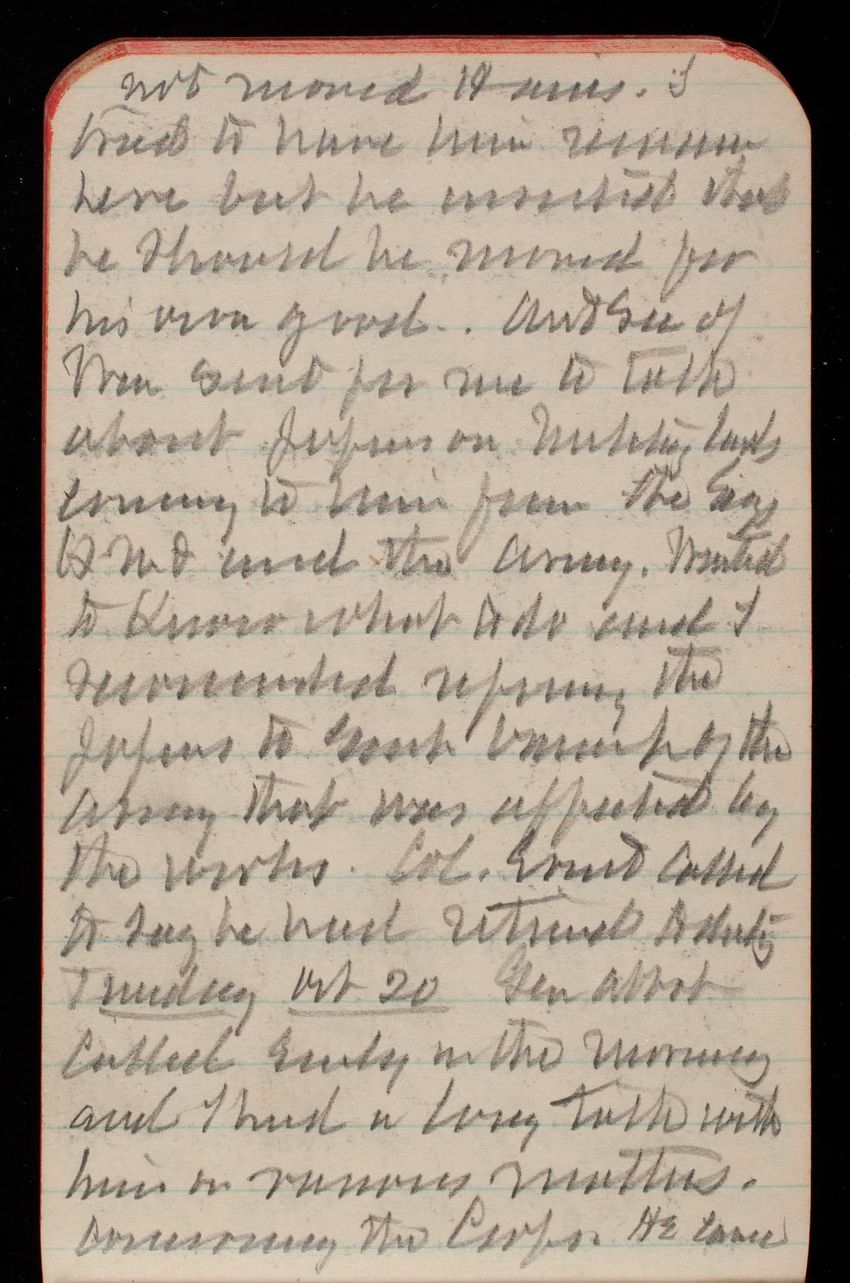 not moved Hains. I
tried to have him remain
here but he insisted that
he should be moved for
his own good.. Ast Sec of
War sent for me to talk
about papers on Military lands
coming to him from the
and the Army. Wanted
to Know what to do and I
recommended refering the
papers to Each branch of the
army that was affected by
the works. Col. Ernst called
to say he had retired to duty
Tuesday Oct 20 Gen Abbot
called Early in the morning
and I had a long talk with
him on various matters.
concerning the Corps. HE came